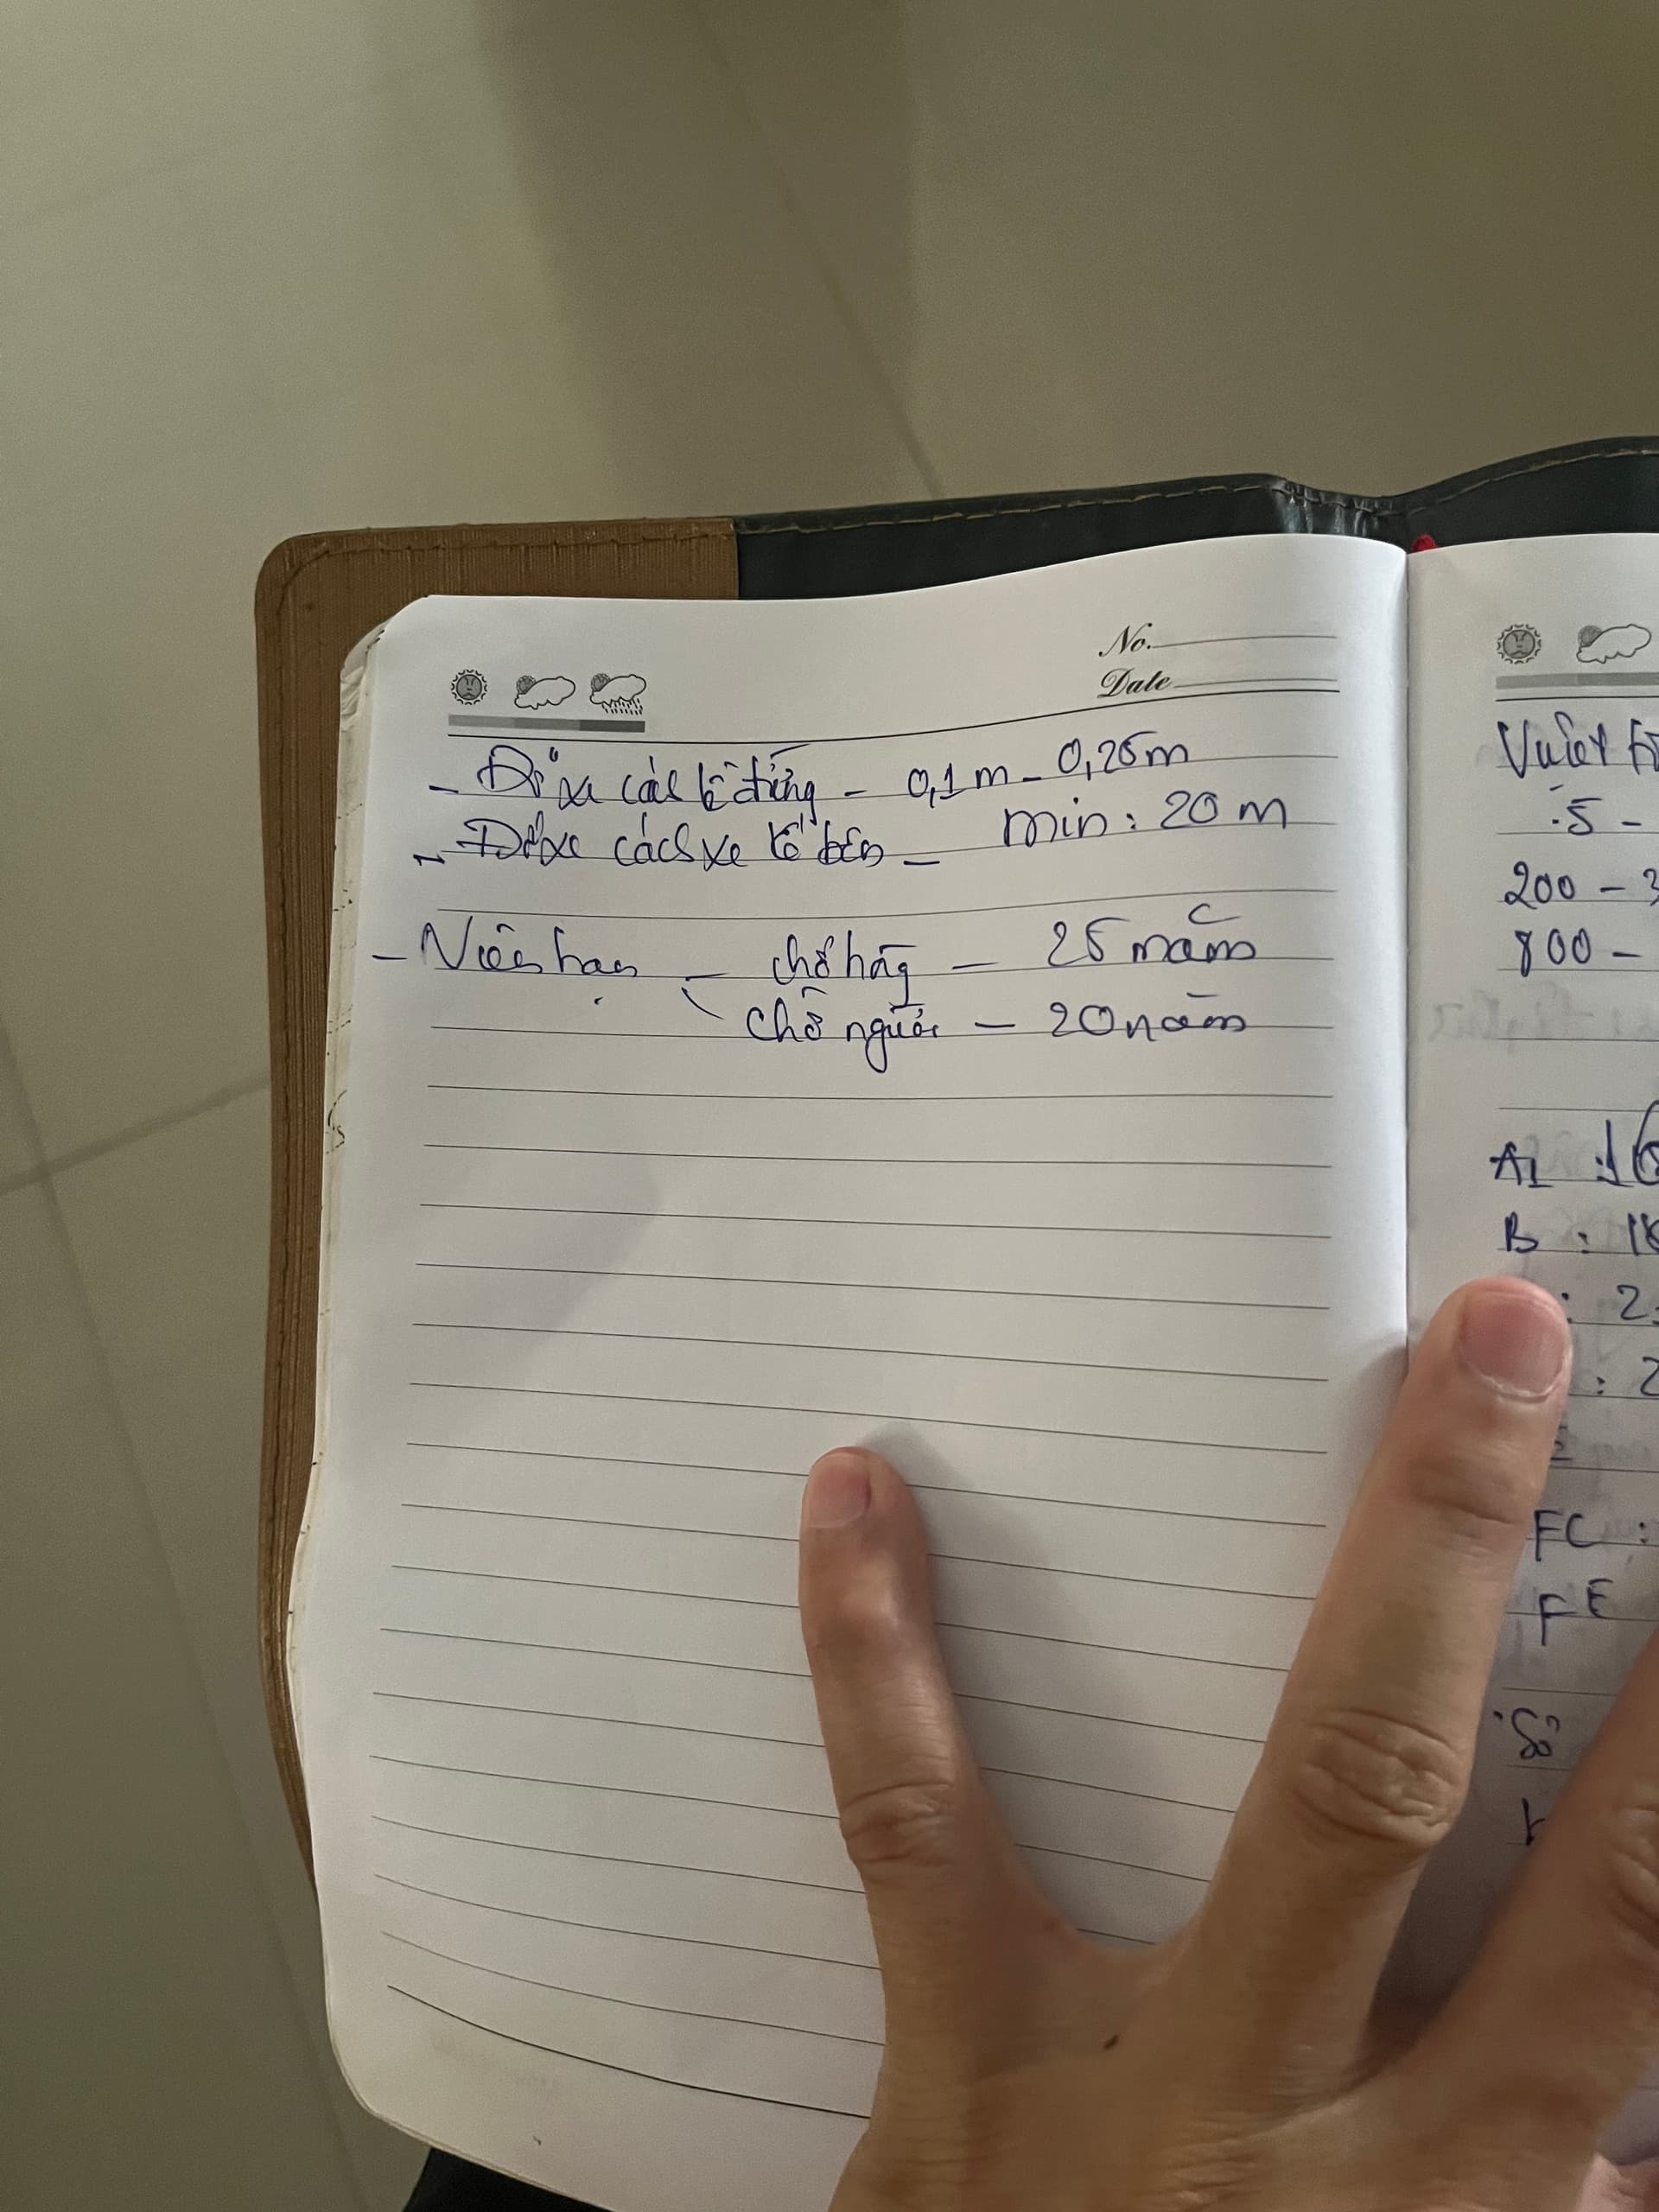 No.
Date
- Đỗ xe cách lề đường - 0,1m - 0,25m
- Đỗ xe cách xe kế bên - min: 20 m
- Niên hạn - chở hàng - 25 năm
chở người - 20 năm
Vượt
5 -
200 - 3
800 -
A1 :
B : 18
: 2
: 2
FC :
FE
Số